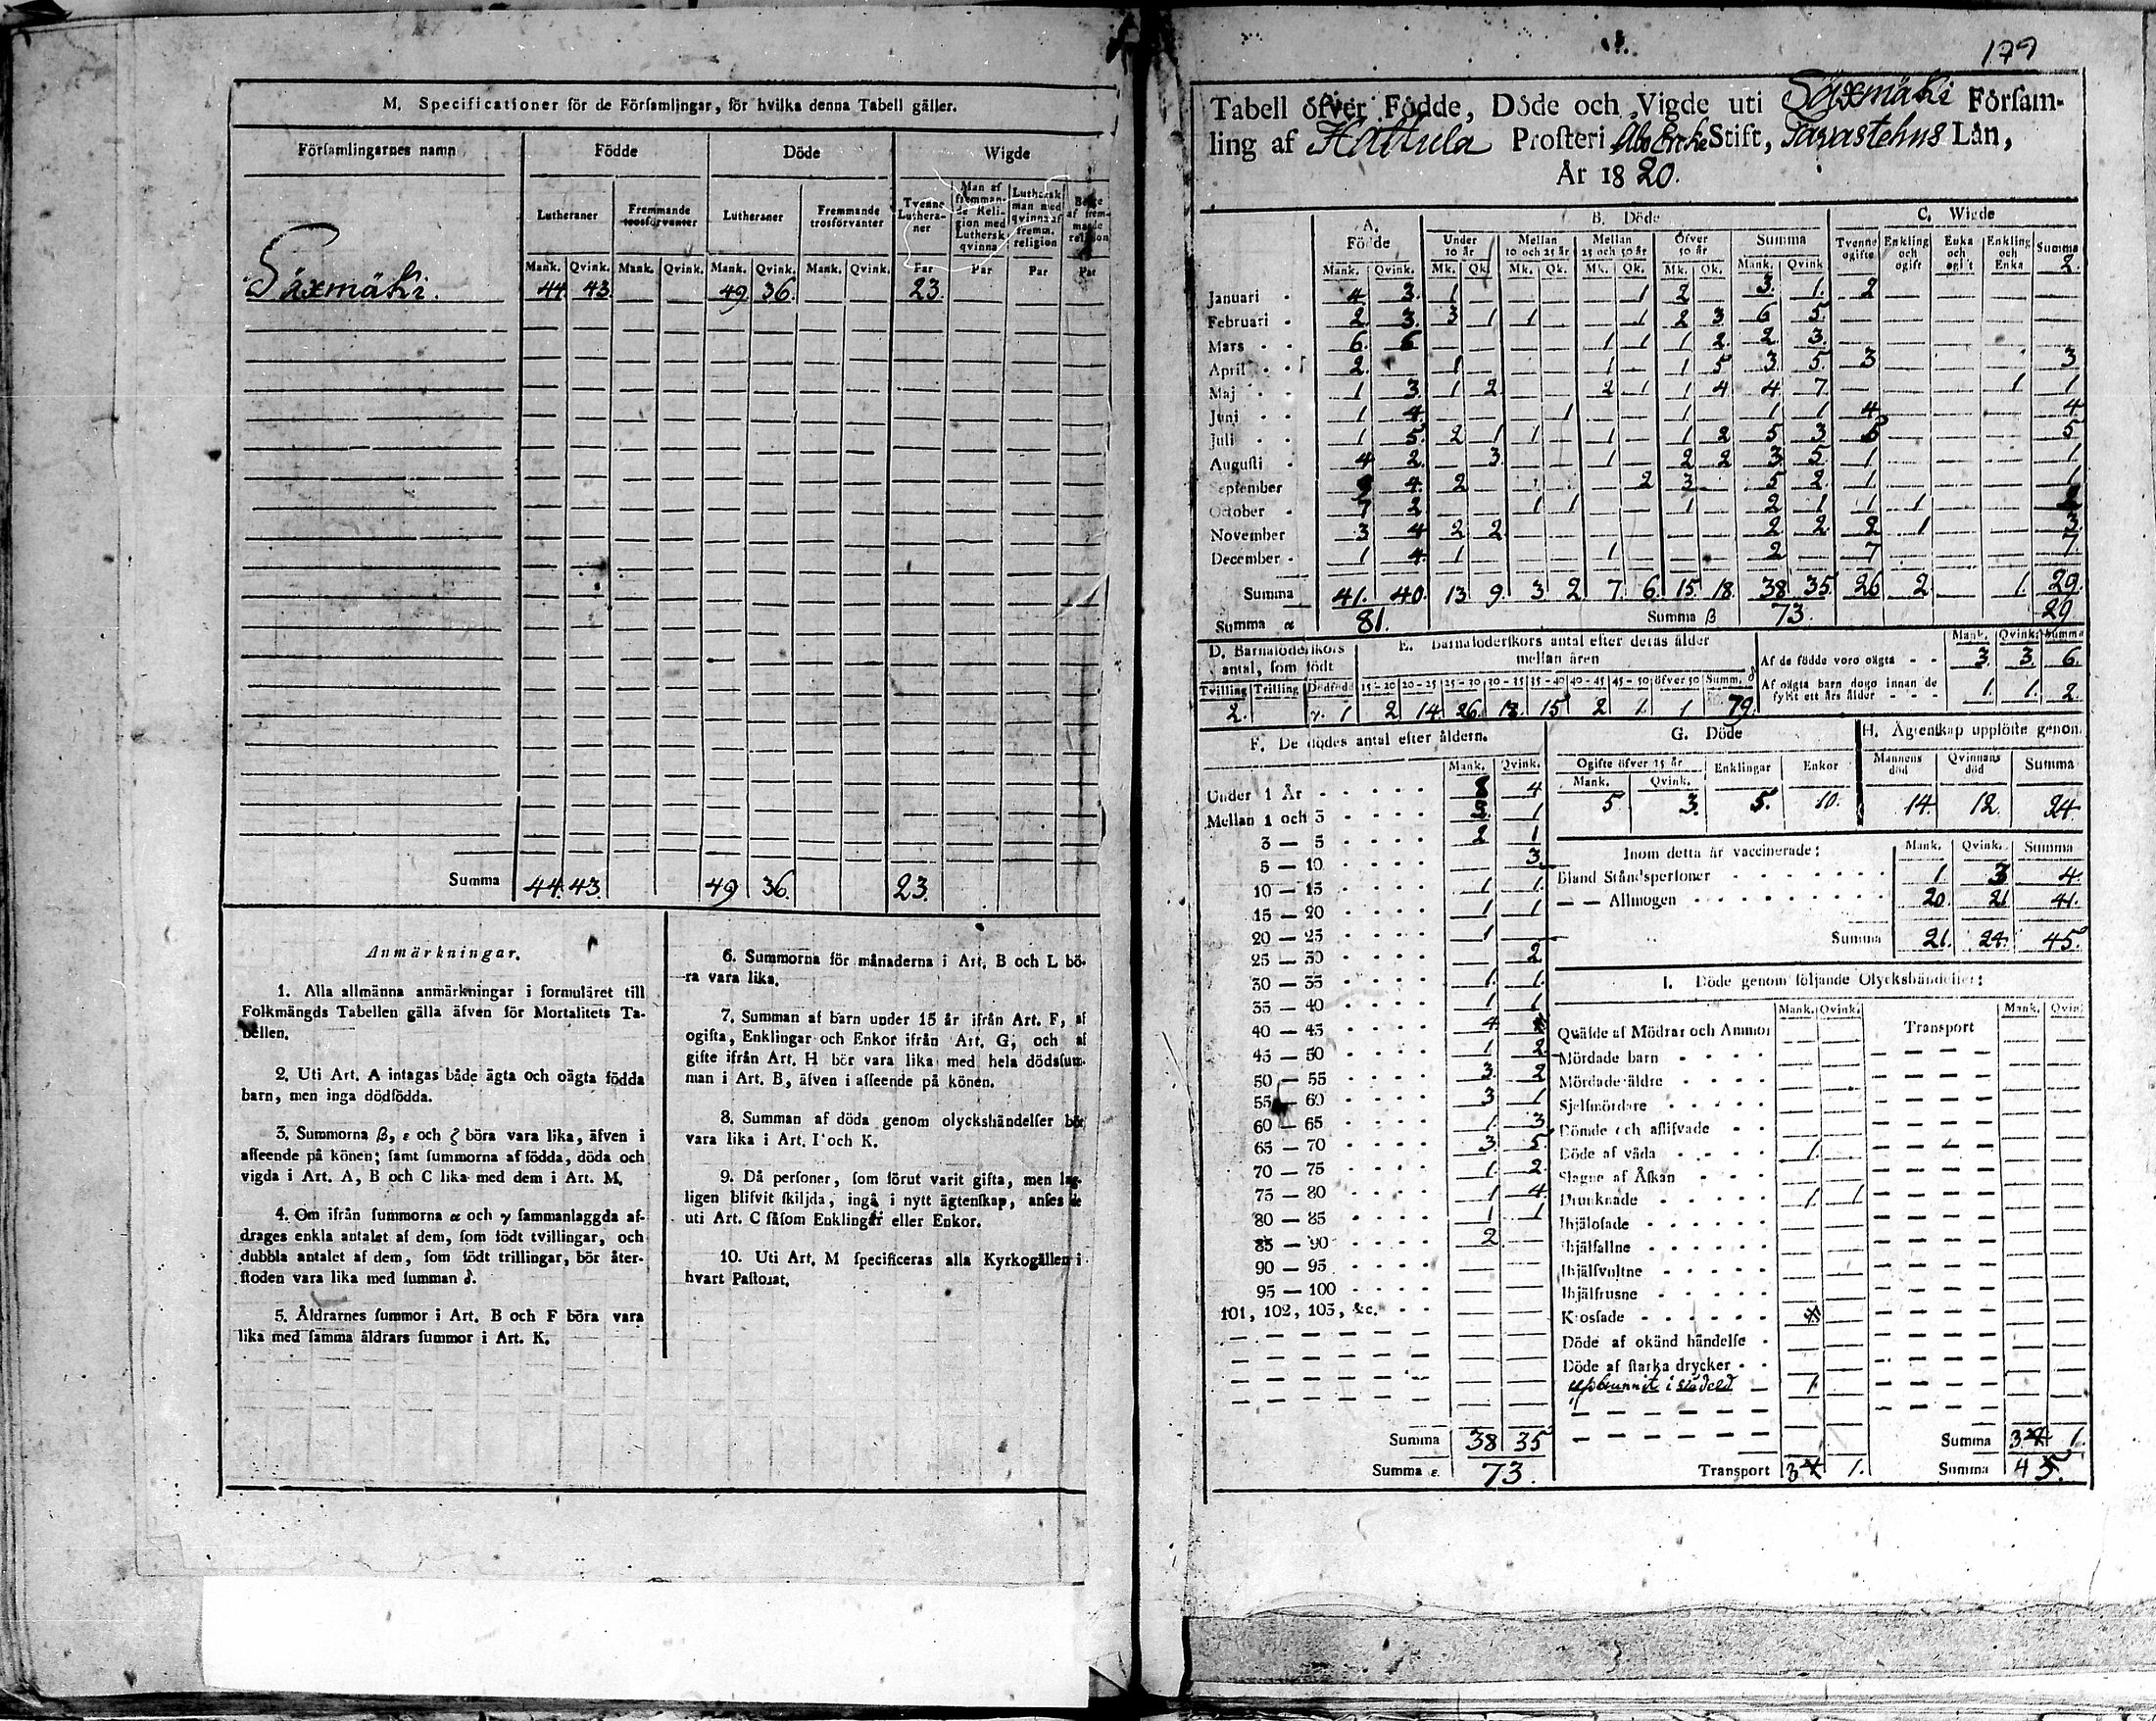 M. Specificationer för de Förſamlingar, för hvilka denna Tabell gäller.
Förſamlingarnes namn Födde Döde Wigde
Lutheraner Fremmande trosförvanter Lutheraner Fremmande trosförvanter Tvenne Lutheraner Man af fremmande Religion med Luthersk qvinna Luthersk man med qvinna af fremm. religion
Mank. Qvink. Mank. Qvink. Mank. Qvink. Mank. Qvink. Par Par Par Par
Säxmäki. 44 43. 49 36. 23.
Summa 44. 43. 49 36. 23.
Anmärkningar.
1. Alla allmänna anmärkningar i formuläret till
Folkmängds Tabellen gälla äfven för Mortalitets Ta-
bellen.
2. Uti Art. A intagas både ägta och oägta födda
barn, men inga dödfödda.
3. Summorna ß, ε och ζ böra vara lika, äfven i
aſſeende på könen; ſamt ſummorna af födda, döda och
vigda i Art. A, B och C lika med dem i Art. M.
4. Om ifrån ſummorna α och γ ſammanlaggda af-
drages enkla antalet af dem, ſom födt tvillingar, och
dubbla antalet af dem, ſom födt trillingar, bör åter-
ſtoden vara lika med ſumman δ.
5. Åldrarnes ſummor i Art. B och F böra vara
lika med ſamma åldrars ſummor i Art. K.
6. Summorna för månaderna i Art. B och L bö-
ra vara lika.
7. Summan af barn under 15 år ifrån Art. F, af
ogifta, Enklingar och Enkor ifrån Art. G, och af
gifte ifrån Art. H bör vara lika med hela dödsſum-
man i Art. B, äfven i aſſeende på könen.
8. Summan af döda genom olyckshändelſer bör
vara lika i Art. I och K.
9. Då perſoner, ſom förut varit gifta, men lag-
ligen blifvit ſkiljda, ingå i nytt ägtenſkap, anſes de
uti Art. C ſåſom Enklingar eller Enkor.
10. Uti Art. M ſpecificeras alla Kyrkogällen i
hvart Paſtorat.
179
Tabell öfver Födde, Döde och Vigde uti Säxmäki Förſam-
ling af Hattula Proſteri Åbo Stift, Tavastehus Län,
År 1820.
A. Födde B. Döde C. Wigde
Under 10 år Mellan 10 och 25 år Mellan 25 och 50 år Öfver 50 år Summa Tvenne ogifte Enkling och ogift Enka och ogift Enkling och Enka Summa
Mank. Qvink. Mk. Qk. Mk. Qk. Mk. Qk. Mk. Qk. Mank. Qvink 2.
Januari 4 3. 1 1 2 3. 1. 2
Februari 2. 3. 3 1 1 1 2 3 6 5
Mars 6. 6 1 1 1 2. 2 3.
April 2. 1 1 1 5 3. 5. 3 3
Maj 1 3. 1 2. 2 1 1 4 4 7. 1 1
Juni 1 4. 1 1 1 1 4 4.
Juli 1 5. 2 1 1 1 1 2 5 3 5 5
Auguſti 4 2. 3. 1 2 2 3. 5. 1 1
September 4. 2 2 3. 5 2. 1 1
October 7 2 1 1 1 2 1 1 1
November 3 4 2 2. 2 2. 2 1 3.
December 1 4. 1 1 2 7 7.
Summa 41. 40. 13 9. 3. 2. 7. 6. 15. 18. 38. 35. 26 2 1. 29.
Summa α 81. Summa ß 73. 29
D. Barnaföderſkors antal, ſom födt
E. Barnaföderſkors antal efter deras ålder mellan åren
Mank. Qvink. Summa
Af de födde voro oägta 3. 3. 6.
Af oägta barn dogo innan de fyllt ett års ålder 1. 1. 2.
Tvilling Trilling Dödfödde 15-20 20-25 25-30 30-35 35-40 40-45 45-50 öfver 50 Summ. δ
2. γ. 1 2 14. 26. 18. 15 2 1. 1 79.
F. De dödes antal efter åldern.
Mank. Qvink.
Under 1 År 8 4
Mellan 1 och 3 3. 1
3 — 5 2 1
5 — 10 3.
10 — 15 1 1.
15 — 20 1 1
20 — 25 1
25 — 30 2
30 — 35 1. 1.
35 — 40 1 1
40 — 45 4
45 — 50 1 2
50 — 55 3. 2
55 — 60 3 1
60 — 65 1. 3
65 — 70 3. 5
70 — 75 1. 2.
75 — 80 1 4.
80 — 85 1 1
85 — 90 2.
90 — 95
95 — 100
101, 102, 103, &c.
Summa 38 35
Summa ε. 73.
G. Döde
Ogifte öfver 15 år Enklingar Enkor
Mank. Qvink.
5 3. 5. 10.
H. Ägtenſkap upplöſte genom
Mannens död Qvinnans död Summa
14. 12. 24.
Inom detta år vaccinerade: Mank. Qvink. Summa
Bland Ståndsperſoner 1. 3 4.
— — Allmogen 20. 21 41.
Summa 21. 24. 45.
I. Döde genom följande Olyckshändelſer:
Mank. Qvink. Transport Mank. Qvin
Quäfde af Mödrar och Ammor
Mördade barn
Mördade äldre
Sjelfmördare
Dömde och afliſvade
Döde af våda 1.
Slagne af Åſkan
Drunknade 1. 1
Ihjäloſade
Ihjälfallne
Ihjälſvultne
Ihjälfrusne
Kroſſade
Döde af okänd händelſe
Döde af ſtarka drycker
Upbrunnit i 1.
Summa 3 1.
Transport 3 1. Summa 4